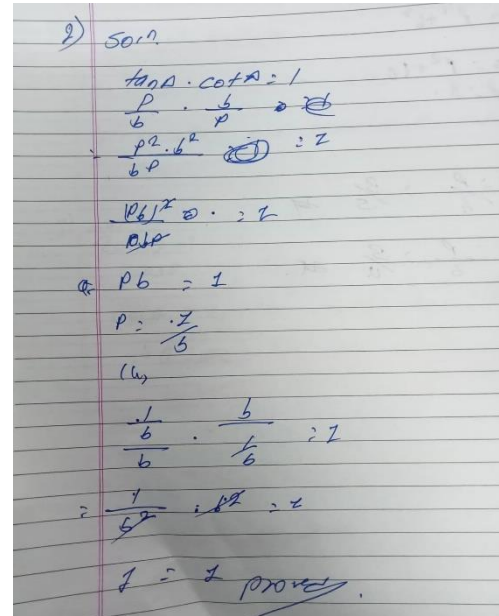 2) Soln
tanA · cotA = 1
P/b · b/P
= P² · b² / bP = 1
(Pb)² / bP = 1
Pb = 1
P = 1/b
(1/b)/b · b/(1/b) = 1
= 1/b² · b² = 1
1 = 1 proved.